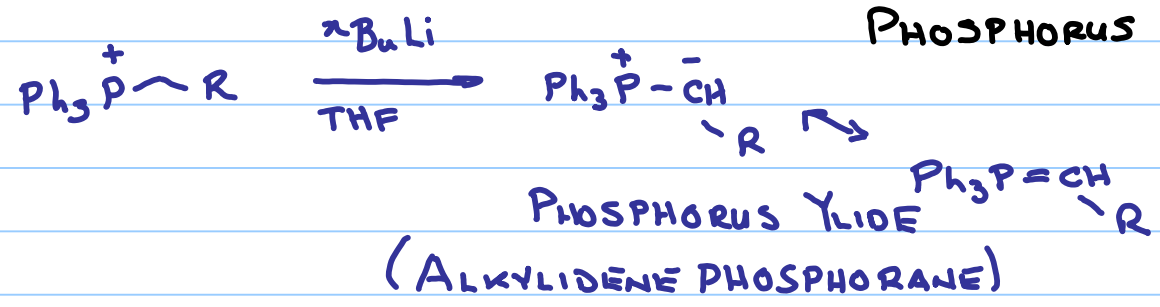 PHOSPHORUS
nBuLi
Ph3P+ R THF Ph3P+ - -CH
R
Ph3P=CH
R
PHOSPHORUS YLIDE
(ALKYLIDENE PHOSPHORANE)